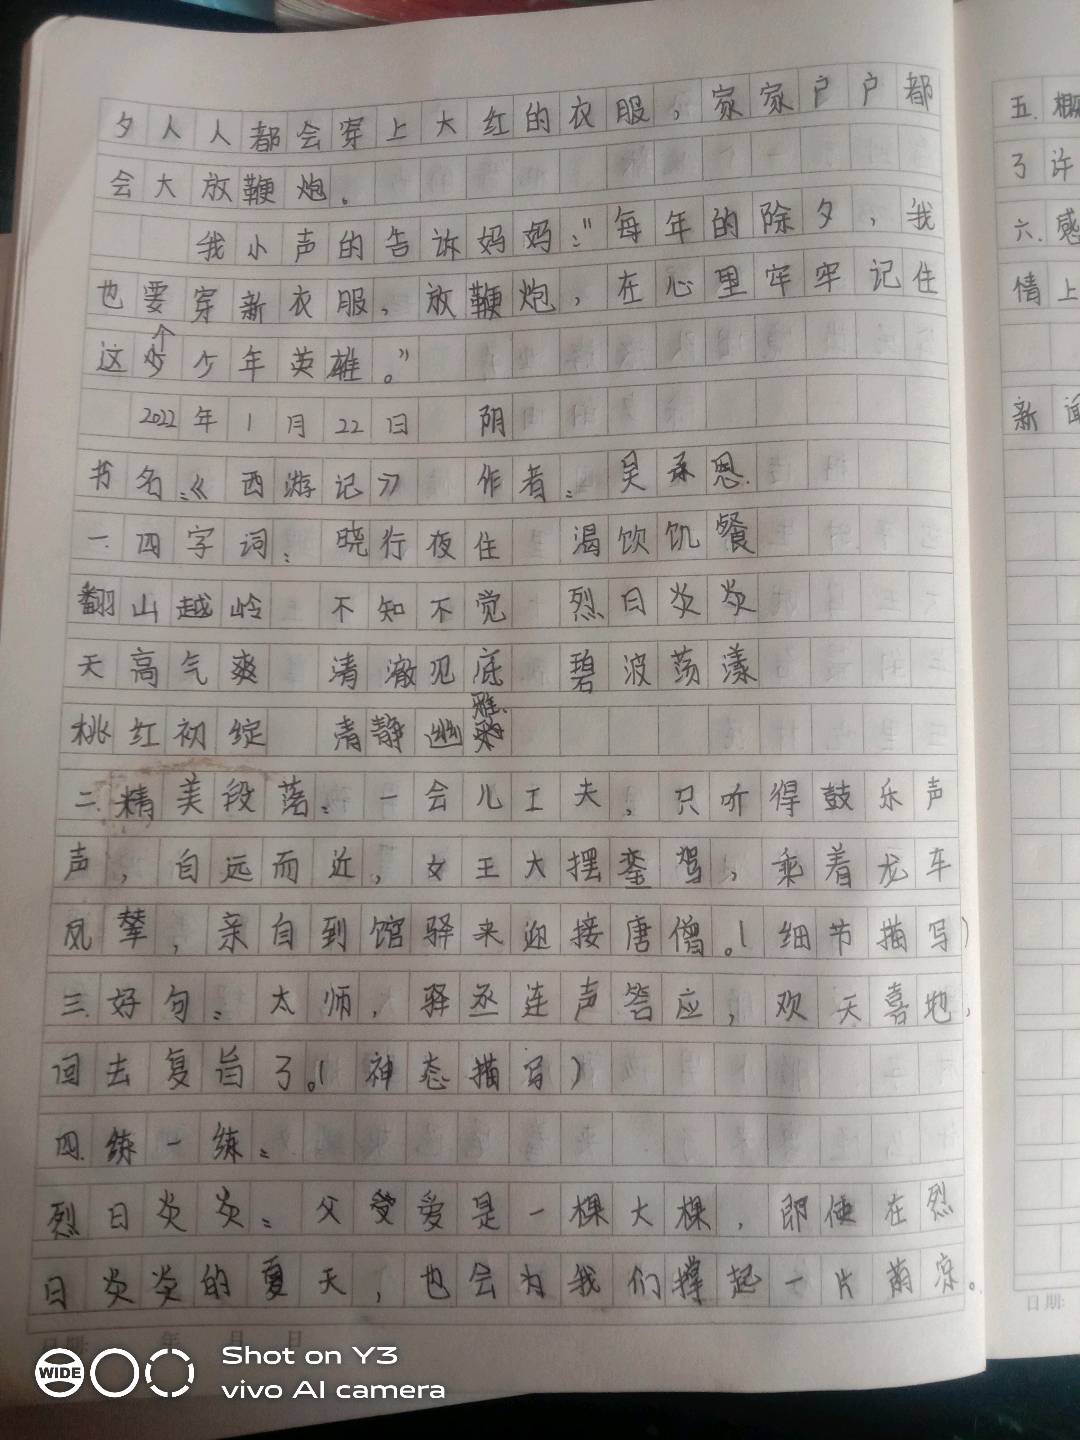 夕人人都会穿上大红的衣服，家家户户都
会大放鞭炮。
我小声的告诉妈妈："每年的除夕，我
也要穿新衣服，放鞭炮，在心里牢牢记住
这个少年英雄。"
2022年1月22日 阴
书名：《西游记》 作者：吴承恩.
一.四字词：晓行夜住 渴饮饥餐
翻山越岭 不知不觉 烈日炎炎
天高气爽 清澈见底 碧波荡漾
桃红初绽 清静幽雅.
二.精美段落：一会儿工夫，只听得鼓乐声
声，自远而近，女王大摆銮驾，乘着龙车
凤辇，亲自到馆驿来迎接唐僧。(细节描写)
三.好句：太师，驿丞连声答应，欢天喜地，
回去复旨了。(神态描写)
四.练一练：
烈日炎炎：父爱是一棵大棵，即使在烈
日炎炎的夏天，也会为我们撑起一片荫凉。
五.概
了许
六.感
情上
新闻
日期: 年 月 日
日期:
WIDE
Shot on Y3
vivo AI camera